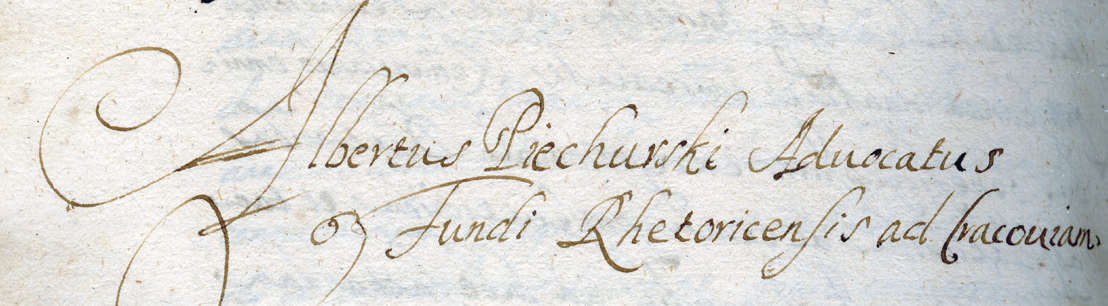 Albertus Piechurski Advocatus
Fundi Rhetoricensis ad Cracouiam